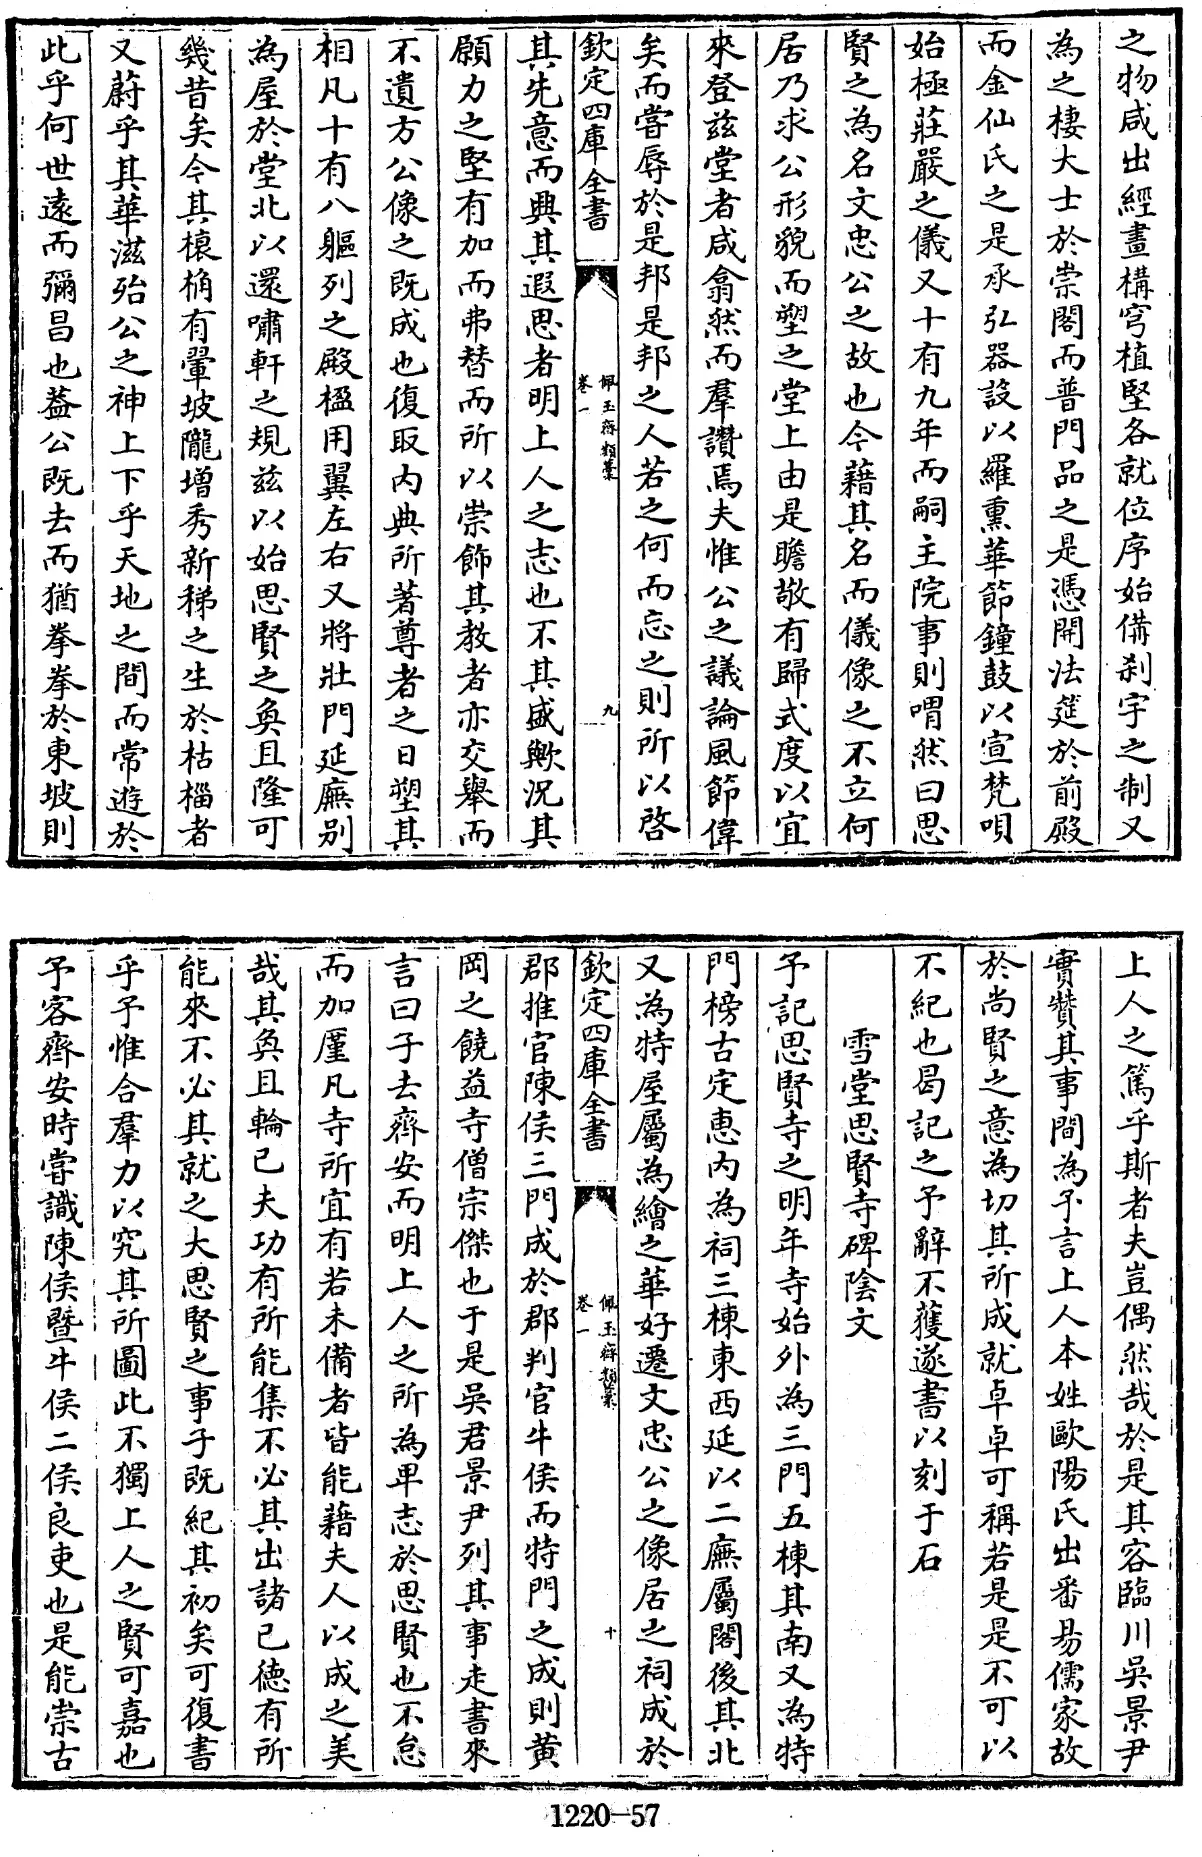 之物咸出經畫構穹植堅各就位序始備刹宇之制又
為之棲大士於崇閣而普門品之是憑開法筵於前殿
而金仙氏之是承弘器設以羅熏華節鐘鼓以宣梵唄
始極莊嚴之儀又十有九年而嗣主院事則喟然曰思
賢之為名文忠公之故也今藉其名而儀像之不立何
居乃求公形貌而塑之堂上由是瞻敬有歸式度以宜
來登兹堂者咸翕然而羣讚焉夫惟公之議論風節偉
矣而嘗辱於是邦是邦之人若之何而忘之則所以啓
欽定四庫全書
佩玉齋類藁
卷一
九
其先意而興其遐思者明上人之志也不其盛歟況其
願力之堅有加而弗替而所以崇飾其教者亦交舉而
不遺方公像之既成也復取内典所著尊者之日塑其
相凡十有八軀列之殿楹用翼左右又將壯門延廡别
為屋於堂北以還嘯軒之規兹以始思賢之奐且隆可
幾昔矣今其榱桷有翬坡隴增秀新稊之生於枯榴者
又蔚乎其華滋殆公之神上下乎天地之間而常遊於
此乎何世遠而彌昌也葢公既去而猶拳拳於東坡則
上人之篤乎斯者夫豈偶然哉於是其容臨川吳景尹
實贊其事間為予言上人本姓歐陽氏出番昜儒家故
於尚賢之意為切其所成就卓卓可稱若是是不可以
不紀也曷記之予辭不獲遂書以刻于石
雪堂思賢寺碑隂文
予記思賢寺之明年寺始外為三門五棟其南又為特
門榜古定惠内為祠三棟東西延以二廡屬閣後其北
又為特屋屬為繪之華好遷文忠公之像居之祠成於
欽定四庫全書
佩玉齋類藁
卷一
十
郡推官陳侯三門成於郡判官牛侯而特門之成則黄
岡之饒益寺僧宗傑也于是吳君景尹列其事走書來
言曰子去齊安而明上人之所為卑志於思賢也不怠
而加厪凡寺所宜有若未備者皆能藉夫人以成之美
哉其奐且輪已夫功有所能集不必其出諸已德有所
能來不必其就之大思賢之事子既紀其初矣可復書
乎予惟合羣力以究其所圖此不獨上人之賢可嘉也
予客齊安時嘗識陳侯暨牛侯二侯良吏也是能崇古
1220-57